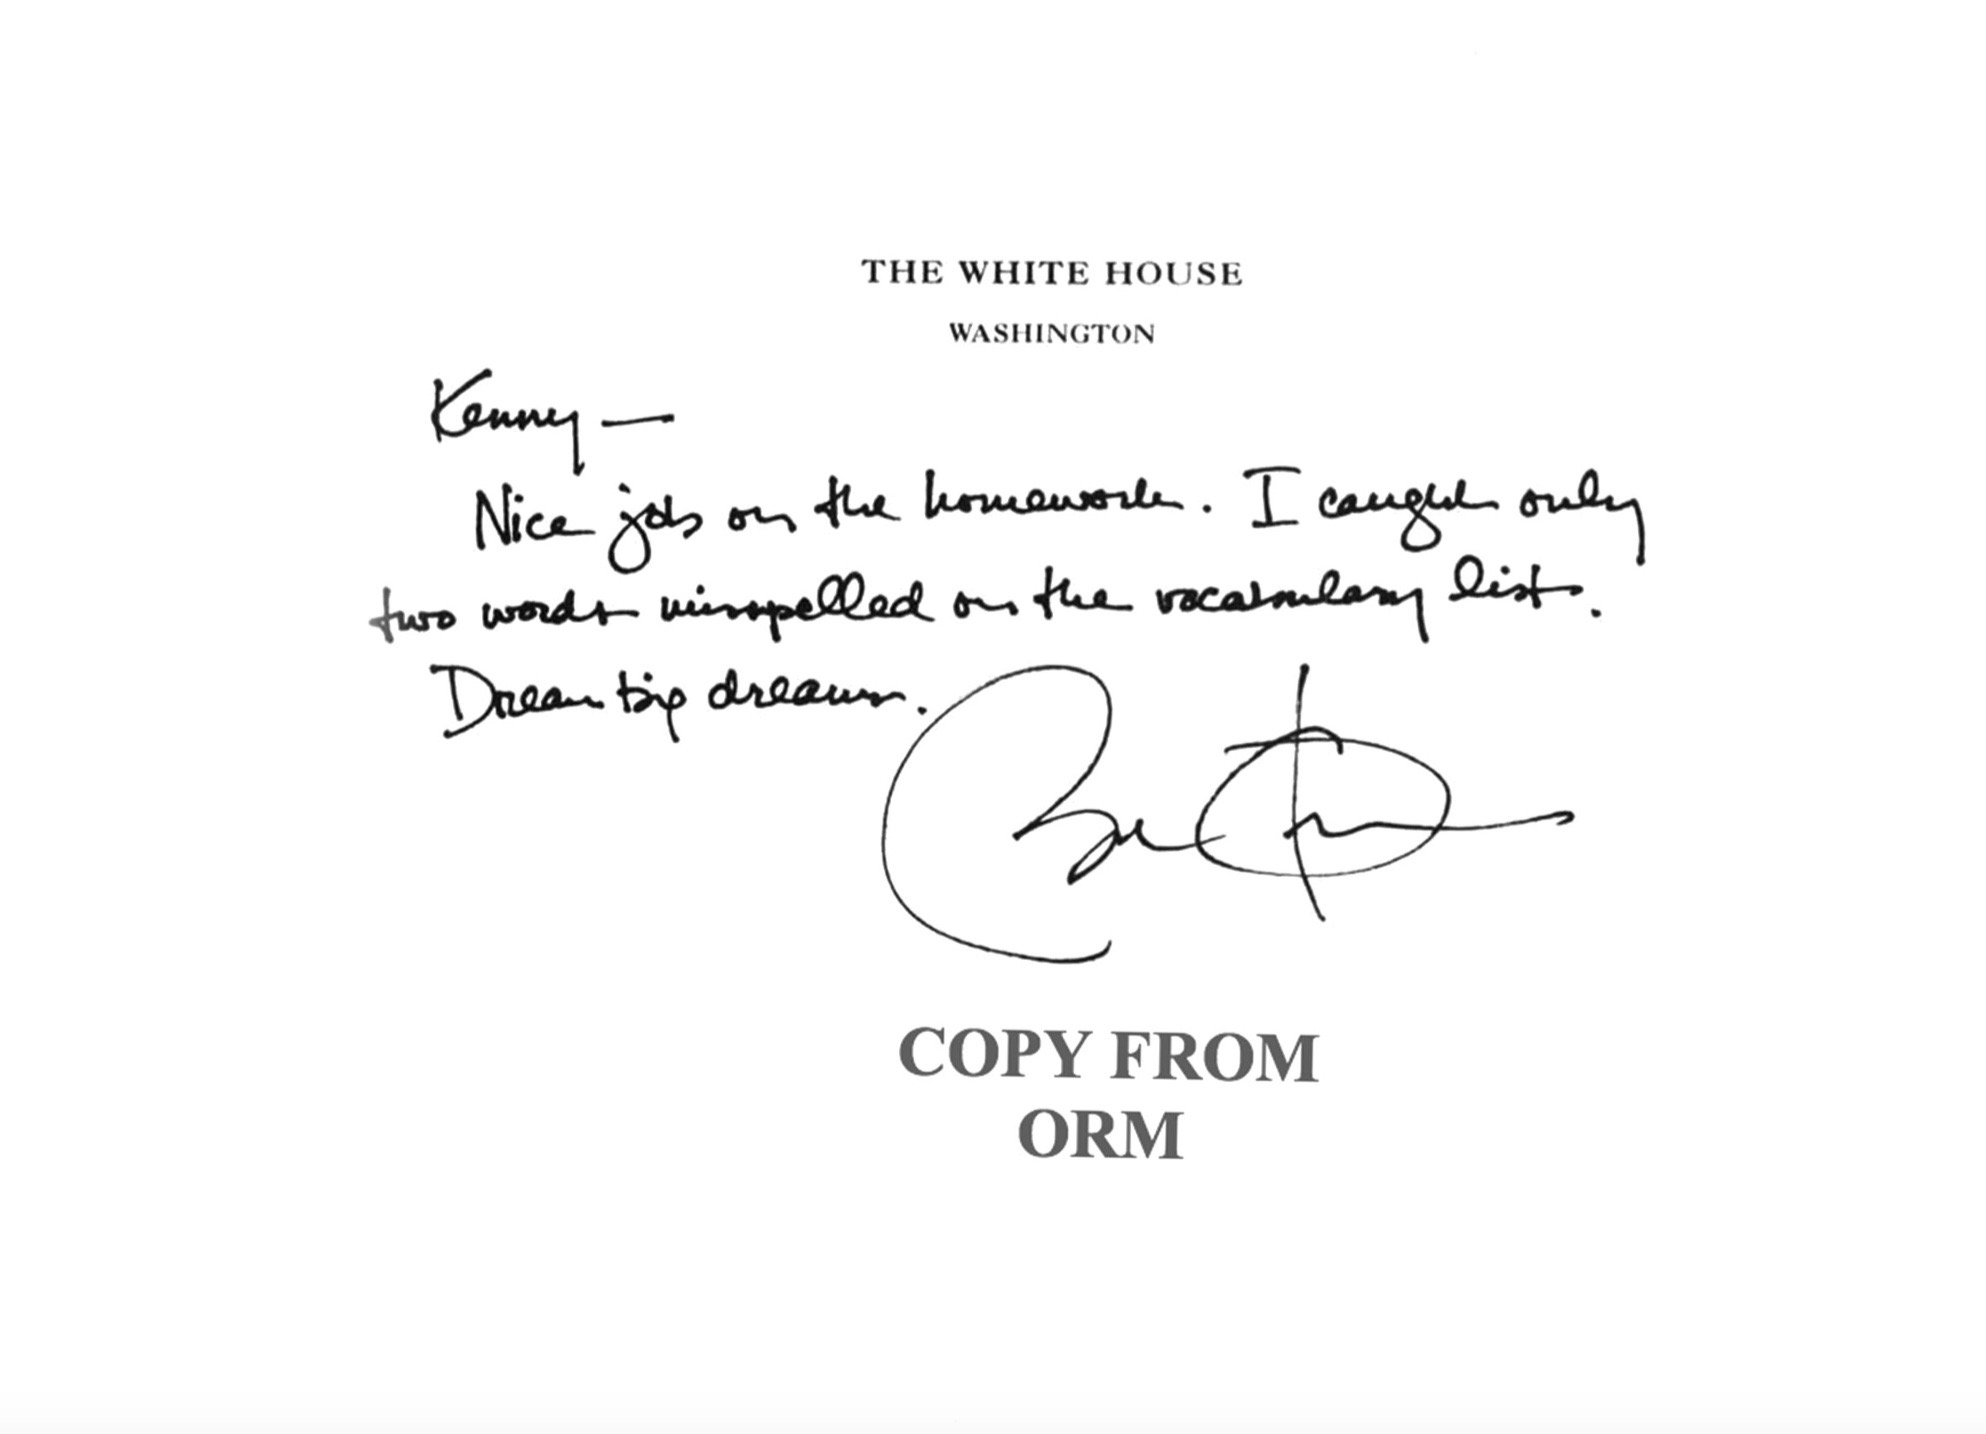 THE WHITE HOUSE
WASHINGTON
Kenny —
Nice job on the homework. I caught only
two words misspelled on the vocabulary list.
Dream big dreams.
COPY FROM
ORM